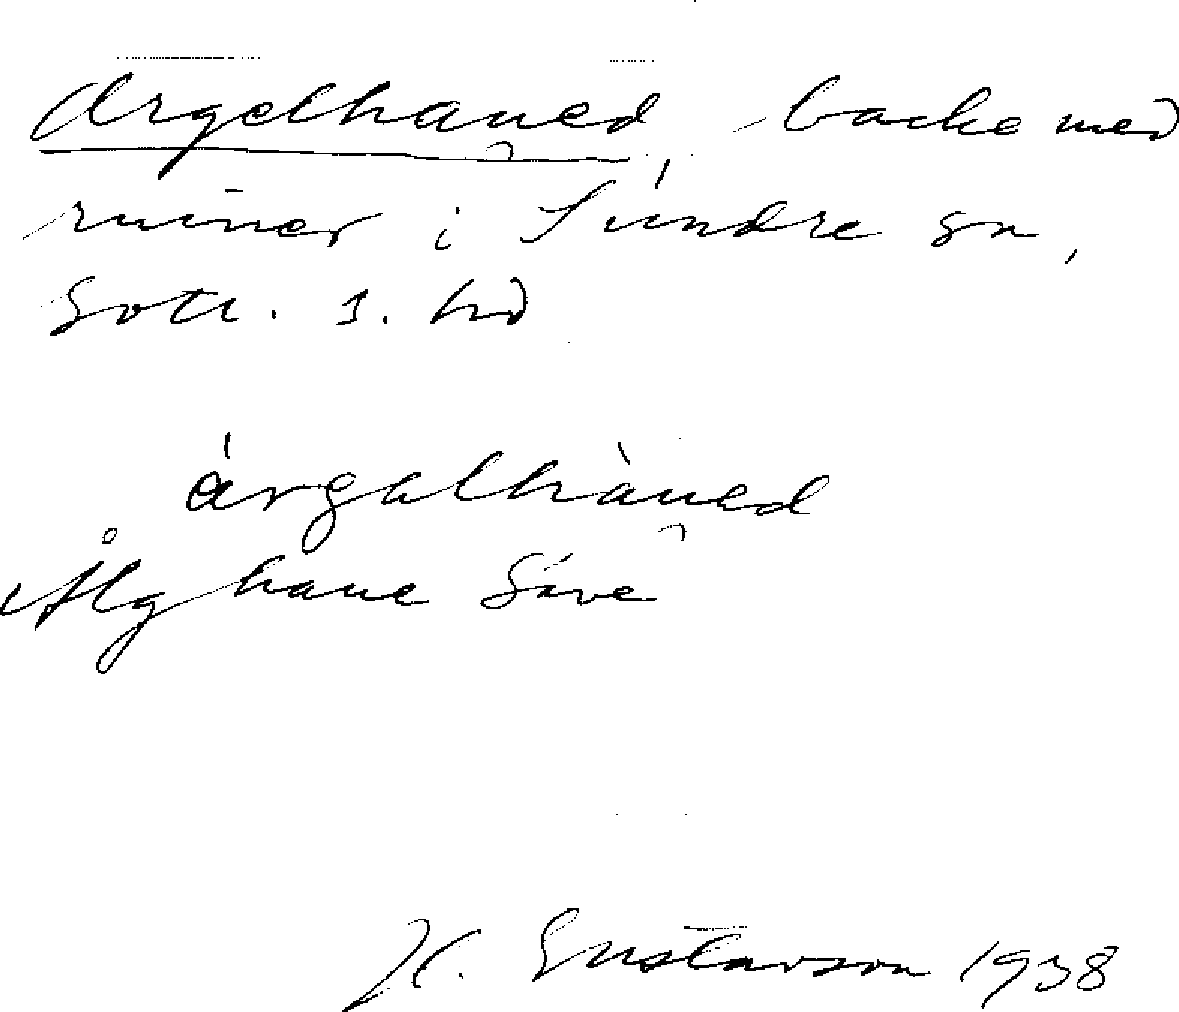 Argelhaued, backe med
ruiner i Sundre sn,
Gotl. 1. hd
árgalhàued
Ålghaue Säve
H. Gustavson 1938